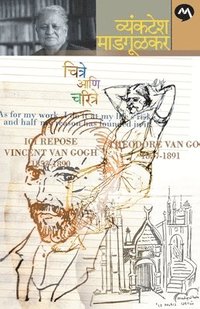 व्यंकटेश
माडगूळकर
चित्रे
आणि
चरित्रे
As for my work, I do it at my life's risk,
and half my reason has founded in it
ICI REPOSE
VINCENT VAN GOGH
1853-1890
THEODORE VAN GO
1857-1891